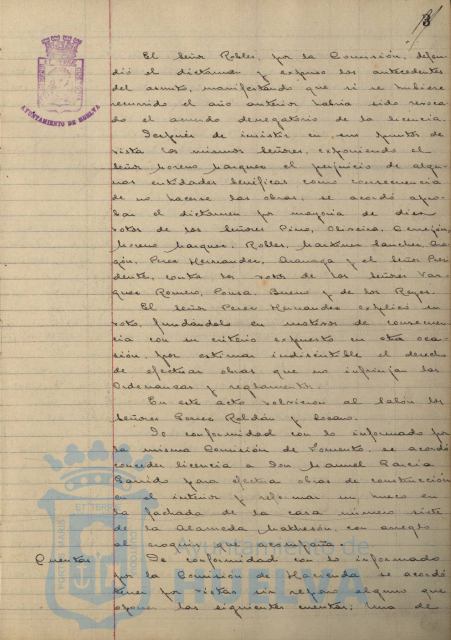 3
AYUNTAMIENTO DE HUELVA
El Señor Robles, por la Comisión, defen-
dió el dictamen y expuso los antecedentes
del asunto, manifestando que si se hubiese
recurrido el año anterior habría sido revoca-
do el acuerdo denegatorio de la licencia.
Después de insistir en sus puntos de
vista los mismos Señores, exponiendo el
Señor Moreno Marquez el perjuicio de algu-
nas entidades benéficas como consecuencia
de no hacerse las obras, se acordó apro-
bar el dictamen por mayoria de diez
votos de los Señores Pino, Oliveira, Cerejon,
Moreno Marquez, Robles, Martinez Sanchez,
Perez Hernandez, y el Señor Presi-
dente, contra los votos de los Señores Vaz-
quez Romero, Ponsa, Bueno y de los Reyes.
El Señor Perez Hernandez explicó su
voto, fundándolo en motivos de consecuen-
cia con su criterio expuesto en otra oca-
sión, por estimar indiscutible el derecho
de efectuar obras que no infrinja las
Ordenanzas y reglamentos.
En este acto volvieron al Salón los
Señores Ponce Roldán y
De conformidad con lo informado por
la misma Comisión de Fomento, se acordó
conceder licencia a Don Manuel Garcia
Garrido para efectuar obras de construcción
en el interior y reformar un hueco en
la fachada de la casa número siete
de la Alameda Matheson, con arreglo
al croquis que acompaña.
Cuentas De conformidad con lo informado
por la Comisión de Hacienda se acordó
tener por vistas sin reparo alguno que
oponer las siguientes cuentas: Una de
Ayuntamiento de
HUELVA